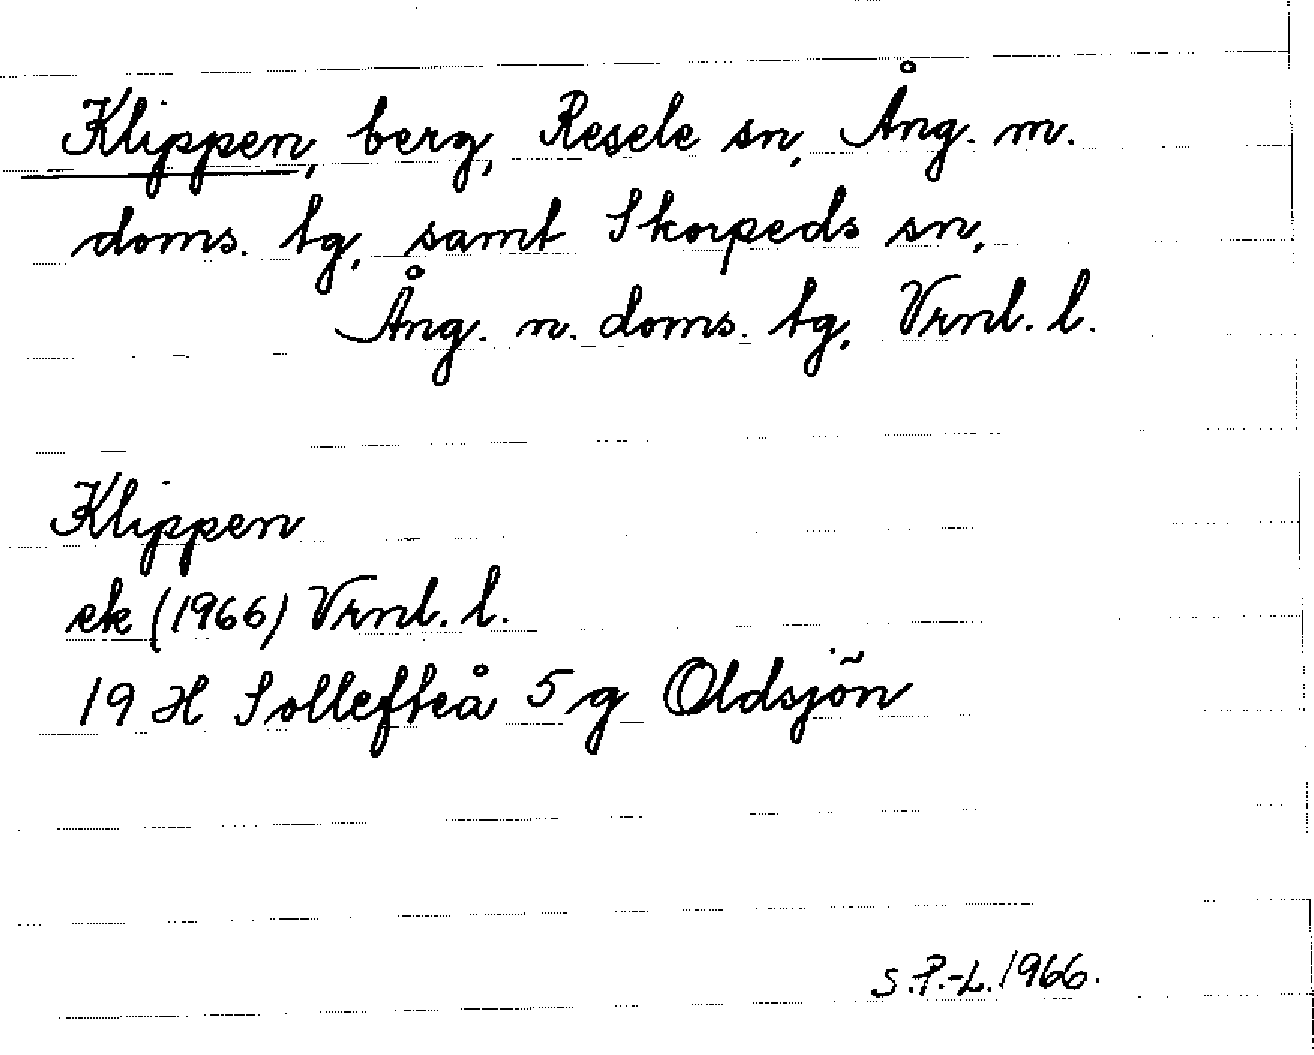 Klippen, berg, Resele sn, Ång. m.
doms. tg, samt Skorpeds sn,
Ång. n. doms. tg, Vrnl. l.
Klippen
ek (1966) Vrnl. l.
19 H Sollefteå 5 g Oldsjön
S.P.-L. 1966.